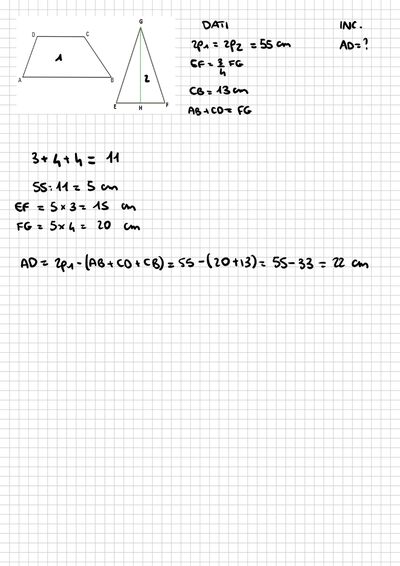 D C
1
A B
G
2
E H F
DATI
2p1 = 2p2 = 55 cm
EF = 3/4 FG
CB = 13 cm
AB + CD = FG
INC.
AD = ?
3 + 4 + 4 = 11
55 : 11 = 5 cm
EF = 5 × 3 = 15 cm
FG = 5 × 4 = 20 cm
AD = 2p1 - (AB + CD + CB) = 55 - (20 + 13) = 55 - 33 = 22 cm